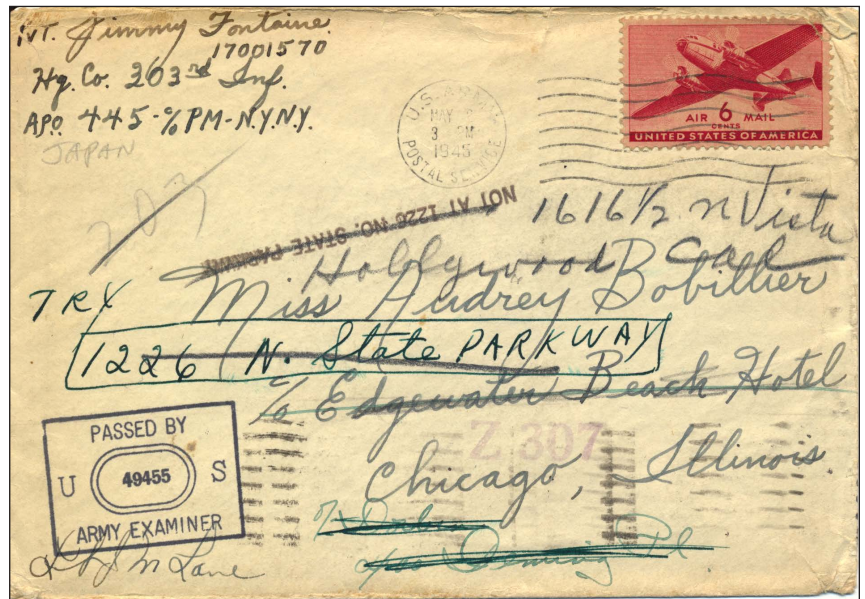 Pvt. Jimmy Fontaine
17001570
Hq. Co. 303rd Inf.
APO 445 - % PM - N.Y. N.Y.
JAPAN
U.S. ARMY
MAY
3 PM
1945
POSTAL SERVICE
AIR 6 MAIL
CENTS
UNITED STATES OF AMERICA
203
NOT AT 1226 NO. STATE PARKWAY
1616 1/2 N Vista
Hollywood Cal
Miss Audrey Bobillier
TRY
1226 N. State PARKWAY
c/o Edgewater Beach Hotel
Z 307
Chicago, Illinois.
PASSED BY
U 49455 S
ARMY EXAMINER
Lane
Deming Pl